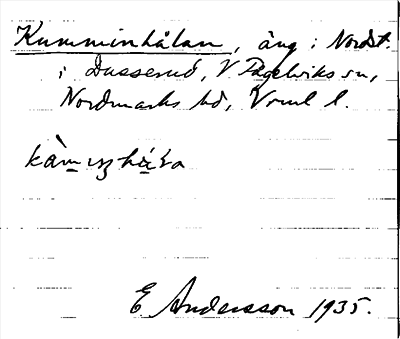 Kumminhålan, äng i Nordst.
i Dusserud, V Fågelviks sn,
Nordmarks hd, Vrml l.
E Andersson 1935.